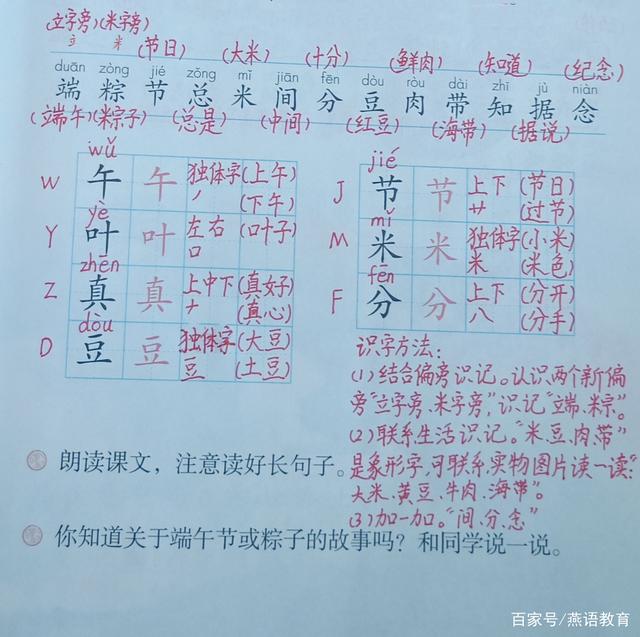 (立字旁)(米字旁)
立 米 (节日) (大米) (十分) (鲜肉) (知道) (纪念)
duān zòng jié zǒng mǐ jiān fēn dòu ròu dài zhī jù niàn
端 粽 节 总 米 间 分 豆 肉 带 知 据 念
(端午)(粽子) (总是) (中间) (红豆) (海带) (据说)
wǔ
W 午 午 独体字 (上午)
丿 (下午)
yè
Y 叶 叶 左右 (叶子)
口
zhēn
Z 真 真 上中下 (真好)
十 (真心)
dòu
D 豆 豆 独体字 (大豆)
豆 (土豆)
jié
J 节 节 上下 (节日)
艹 (过节)
mǐ
M 米 米 独体字 (小米)
米 (米色)
fēn
F 分 分 上下 (分开)
八 (分手)
识字方法:
(1)结合偏旁识记。认识两个新偏
旁“立字旁、米字旁”,识记“端、粽”。
(2)联系生活识记。“米、豆、肉、带”
是象形字,可联系实物图片读一读:“
大米、黄豆、牛肉、海带”。
(3)加一加。“间、分、念”
朗读课文，注意读好长句子。
你知道关于端午节或粽子的故事吗？和同学说一说。
百家号/燕语教育